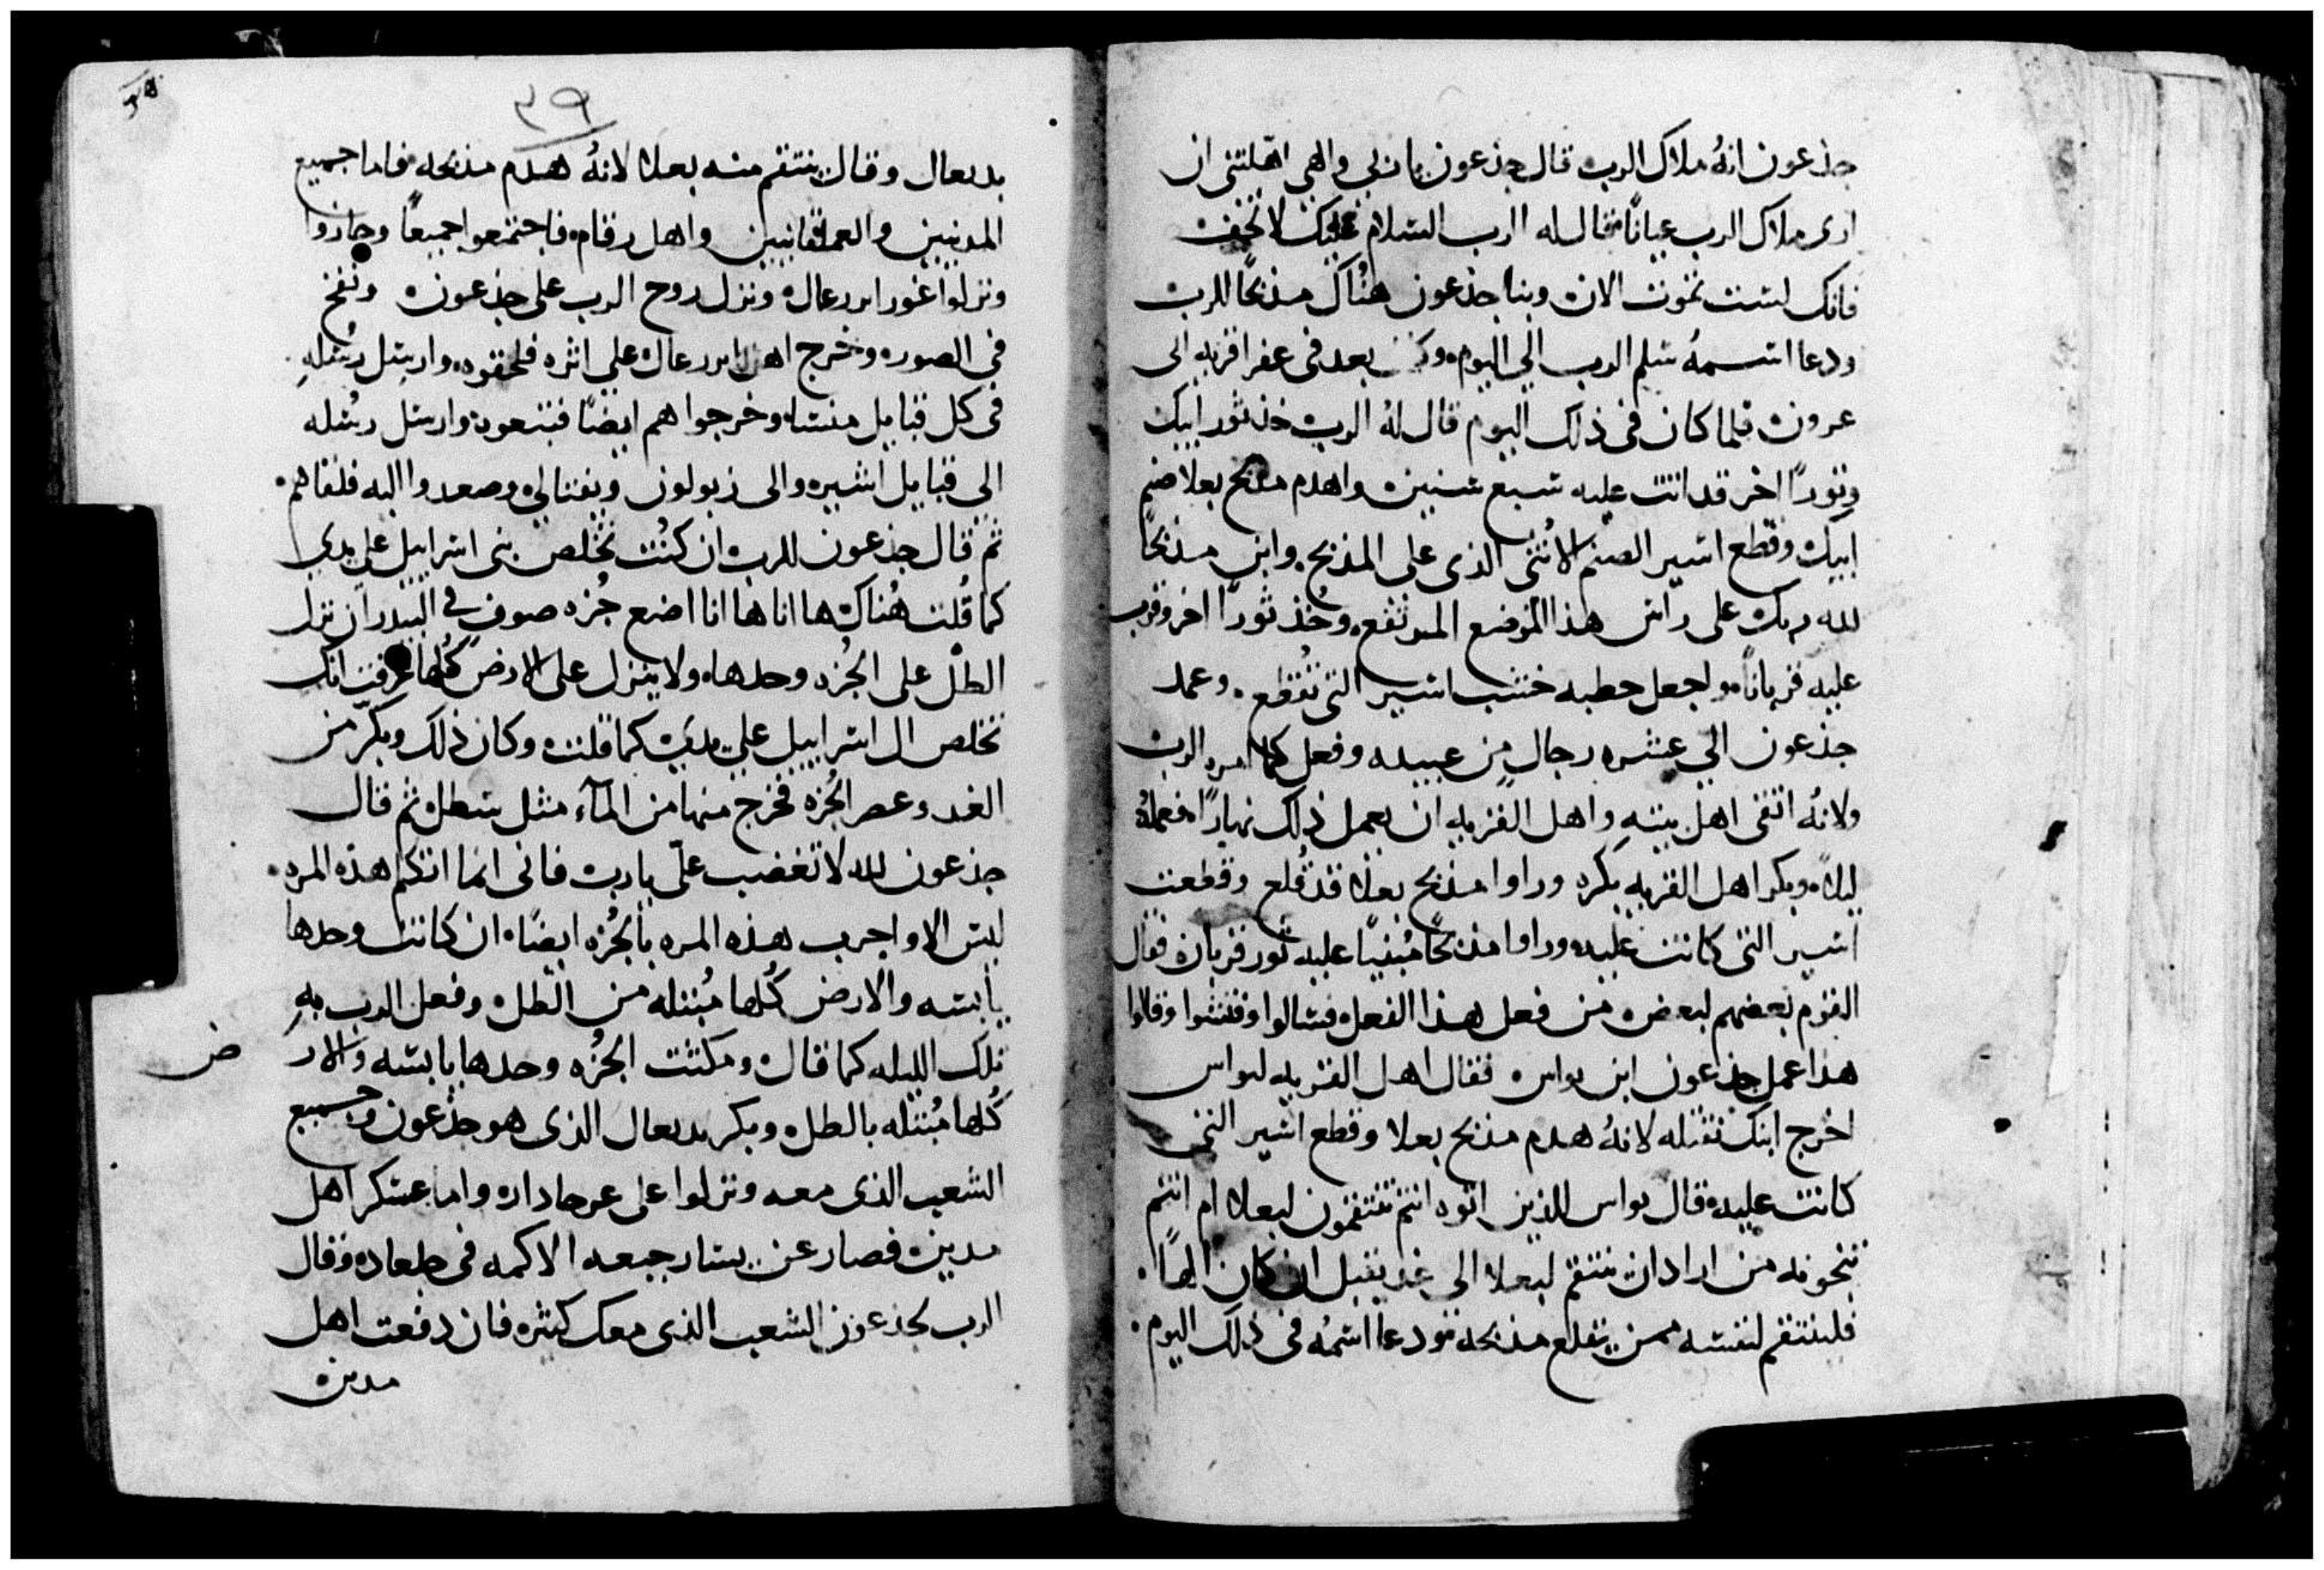 جذعون انهُ ملاك الرب قال جذعون يا ربي والهي اهلتني ان
ارى ملاك الرب عيانًا فقال له الرب السلام عليك لا تخف
فانك لست تموت الان وبنا جذعون هُناك مذبحًا للرب
ودعا اسمهُ سلم الرب الي اليوم بعد في عفرا قريه الى
عرون فلما كان فى ذلك اليوم قال لهُ الرب خذ ثور ابيك
وثورًا اخر قد اتت عليه سبع سنين واهدم مذبح بعلا صنم
ابيك وقطع اشير الصنم الاُنثى الذى على المذبح وابن مذبحًا
لله ربك على راس هذا الموضع المرتفع وخُذ ثورًا اخر وقرب
عليه قربانًا واجعل حطبه خشب اشير التى تُقطع وعمد
جذعون الي عشره رجالٍ من عبيده وفعل كما امره الرب
ولانهُ اتقى اهل بيتهِ واهل القريه ان يعمل ذلك نهارًا فعملهُ
ليلاً وبكر اهل القريه بكره وراوا مذبح بعلا قد قُلع وقطعت
اشير التى كانت عليه وراوا مذبحًا مُبنيًا عليه ثور قربان فقال
القوم بعضهم لبعض من فعل هذا الفعل فسالوا وفتشوا وقالوا
هذا عمل جذعون ابن يواس فقال اهل القريه ليواس
اخرج ابنك نقتله لانهُ هدم مذبح بعلا وقطع اشير التى
كانت عليه قال يواس للذين اتوه انتم تنتقمون لبعلا ام انتم
تنجونه من اراد ان ينتقم لبعلا الى غد يقبل ان كان الهًا
فلينتقم لنفسه ممن يقلع مذبحه ودعا اسمُه فى ذلك اليوم
٣٩
يدبعال وقال ينتقم منه بعلا لانهُ هدم مذبحه فاما جميع
المدنيين والعملقانيين واهل رقام فاجتمعوا جميعًا وجازوا
ونزلوا غور ايررعال ونزل روح الرب على جذعون ونفخ
فى الصور وخرج اهل ايررعال على اثره فلحقوه وارسل رسُلهِ
فى كل قبايل منسا وخرجوا هم ايضًا فتبعوه وارسل رسُله
الى قبايل اشير والى زبولون ويفتالي وصعدوا اليه فلقاهم
ثم قال جذعون للرب ان كنُت تخُلص بنى اسراييل على يدي
كما قُلت هُناك ها انا ها انا اضع جُزه صوف فى البيدر ان نزل
الطل على الجُزه وحدها ولا ينزل على الارض كُلها عرفت انك
تخلص ال اسراييل علي يدي كما قلت وكان ذلك وبكر من
الغد وعصر الجُزه فخرج منها من المآء مثل سطل ثم قال
جذعون لله لا تغضب علّى يا رب فانى انما اتكلم هذه المره
ليس الا واجرب هذه المره بالجُزه ايضًا ان كانت وحدها
يابسه والارض كُلها مُبتله من الطل وفعل الرب بهِ
تلك الليله كما قال ومكثت الجُزه وحدها يابسه والار
ض
كُلها مُبتله بالطل وبكر يدبعال الذى هو جذعون وجميع
الشعب الذى معه ونزلوا على عرحاداد واما عسكر اهل
مدين فصار عن يسار جبعه الاكمه فى جلعاد وقال
الرب لجذعون الشعب الذى معك كثيره فان دفعت اهل
مدين